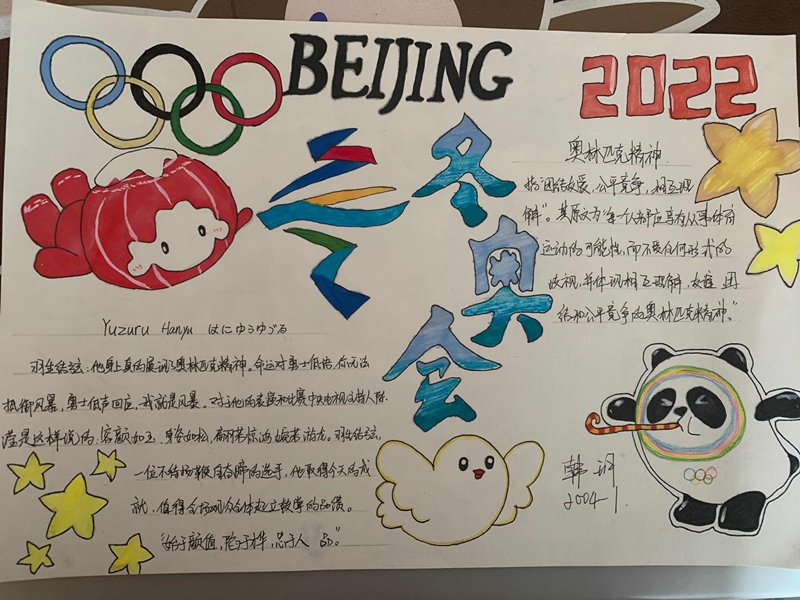 BEIJING
2022
冬
奥
会
奥林匹克精神
指“团结友爱、公平竞争,相互理
解”。其原文为“每个人都应享有从事体育
运动的可能性,而不受任何形式的
歧视,并体现相互理解、友谊、团
结和公平竞争的奥林匹克精神。”
Yuzuru Hanyu はにゅうゆづる
羽生结弦:他身上真的展现了奥林匹克精神。命运对勇士低语,你无法
抵御风暴,勇士低声回应,我就是风暴。对于他的表演和比赛中央电视台主持人陈
滢是这样说的:容颜如玉,身姿如松,翩若惊鸿,婉若游龙。羽生结弦,
一位不待扬鞭自奋蹄的选手,他取得今天的成
就,值得全场观众全体起立
“始于颜值,陷于才华,忠于人品。”
韩
2004-1